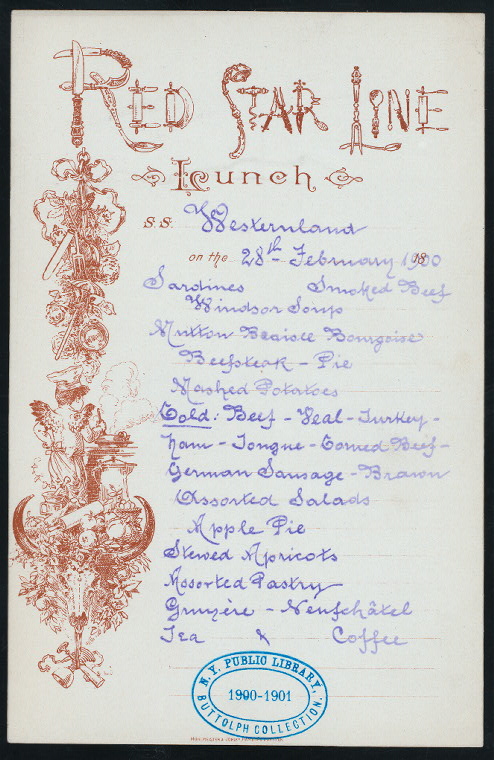 RED STAR LINE
Lunch
S.S. Westernland
on the 28th February 1900
Sardines Smoked Beef
Windsor Soup
Mutton Braisée Bourgoise
Beefsteak - Pie
Mashed Potatoes
Cold: Beef - Veal - Turkey -
Ham - Tongue - Corned Beef -
German Sausage - Brawn
Assorted Salads
Apple Pie
Stewed Apricots
Assorted Pastry
Gruyère - Neufchâtel
Tea & Coffee
N.Y. PUBLIC LIBRARY,
1900-1901
BUTTOLPH COLLECTION.